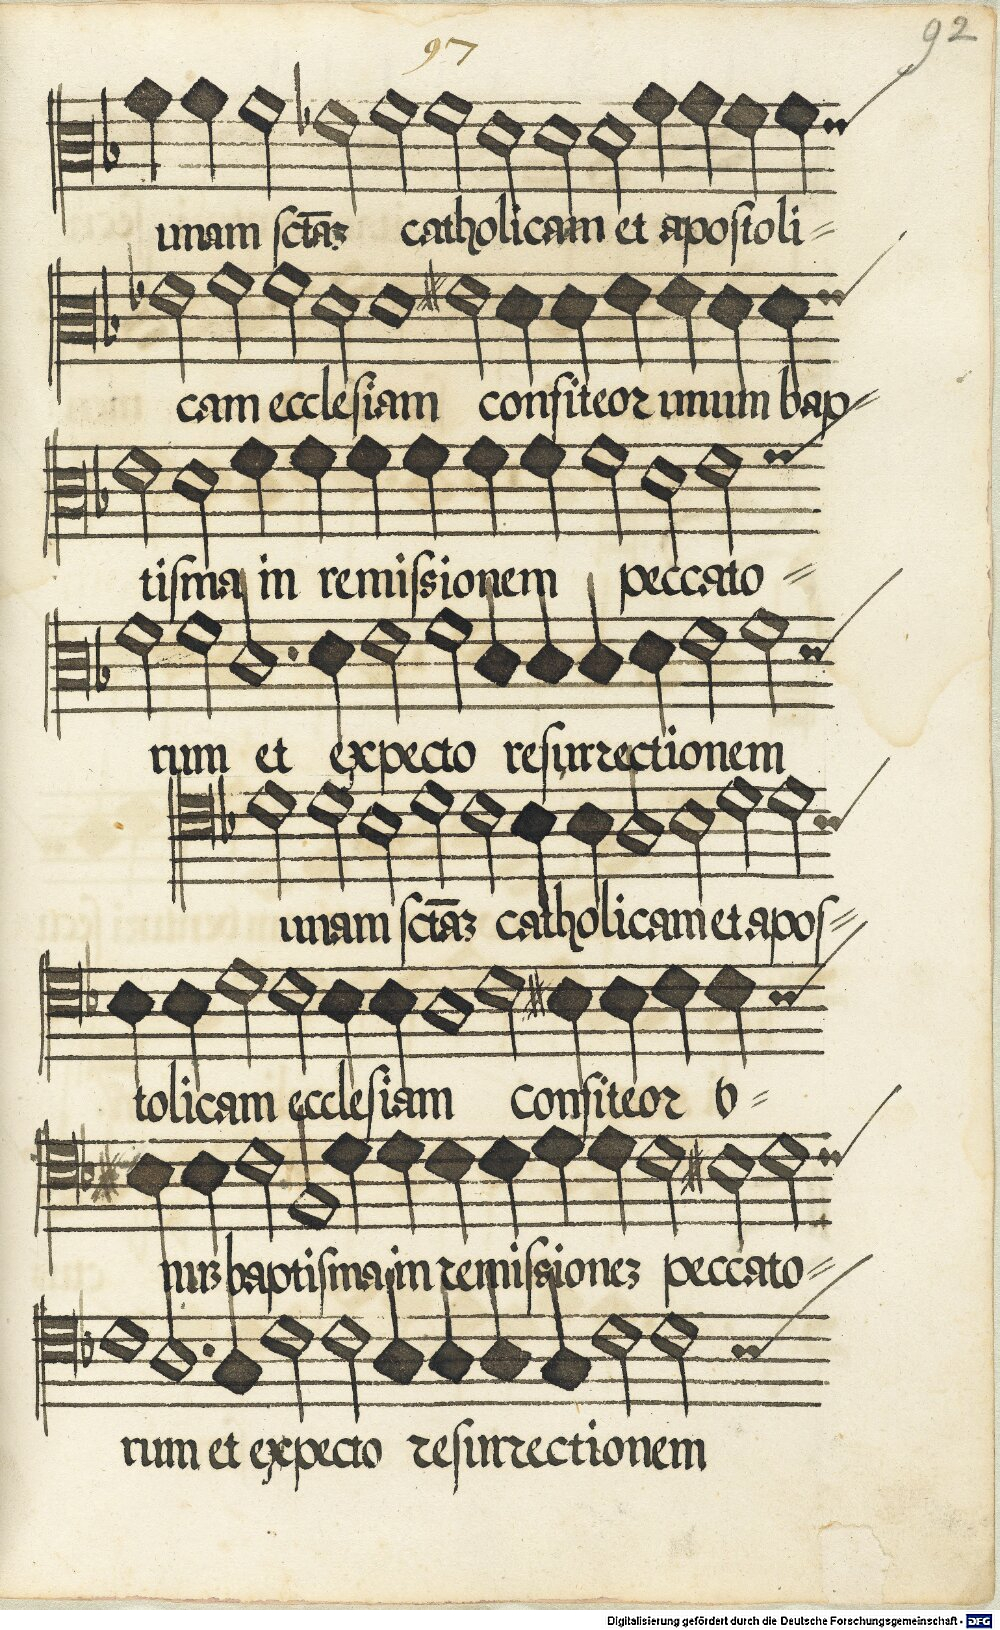 97
92
unam sctãz catholicam et apostoli=
cam ecclesiam confiteor unum bap=
tisma in remissionem peccato=
rum et expecto resurrectionem
unam sctãz catholicam et apos=
tolicam ecclesiam confiteor v=
nuz baptisma in remissionez peccato=
rum et expecto resurrectionem
Digitalisierung gefördert durch die Deutsche Forschungsgemeinschaft - DFG